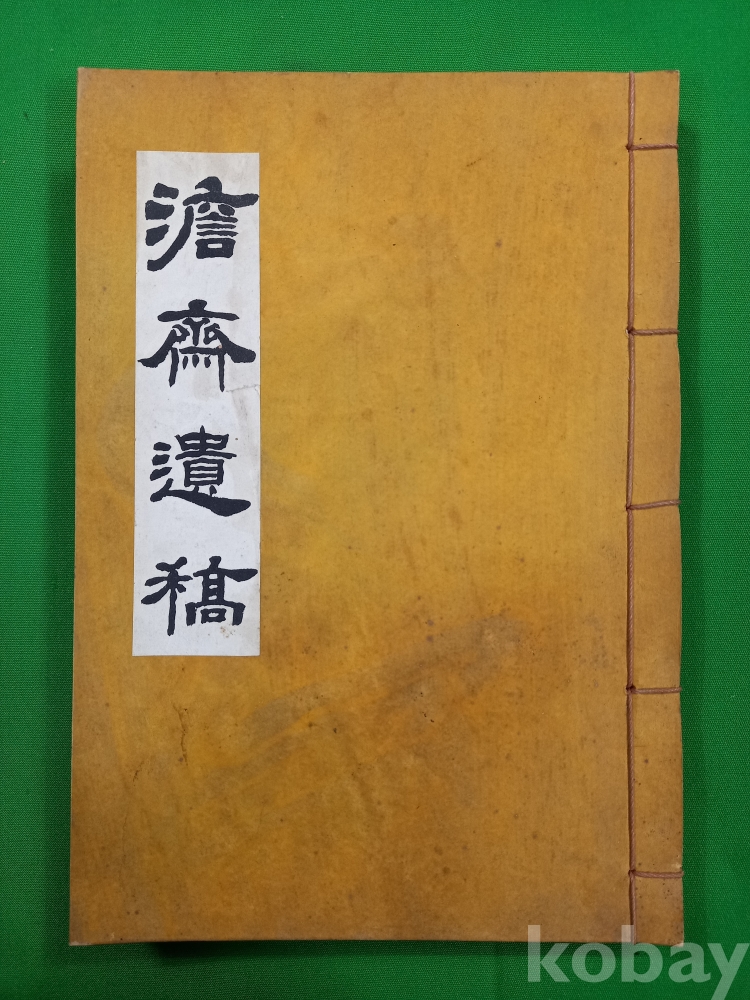 澹齋遺稿
kobay